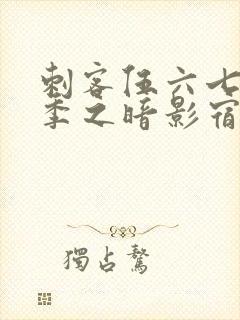 刺客伍六七
季之暗影宿
獨占鰲